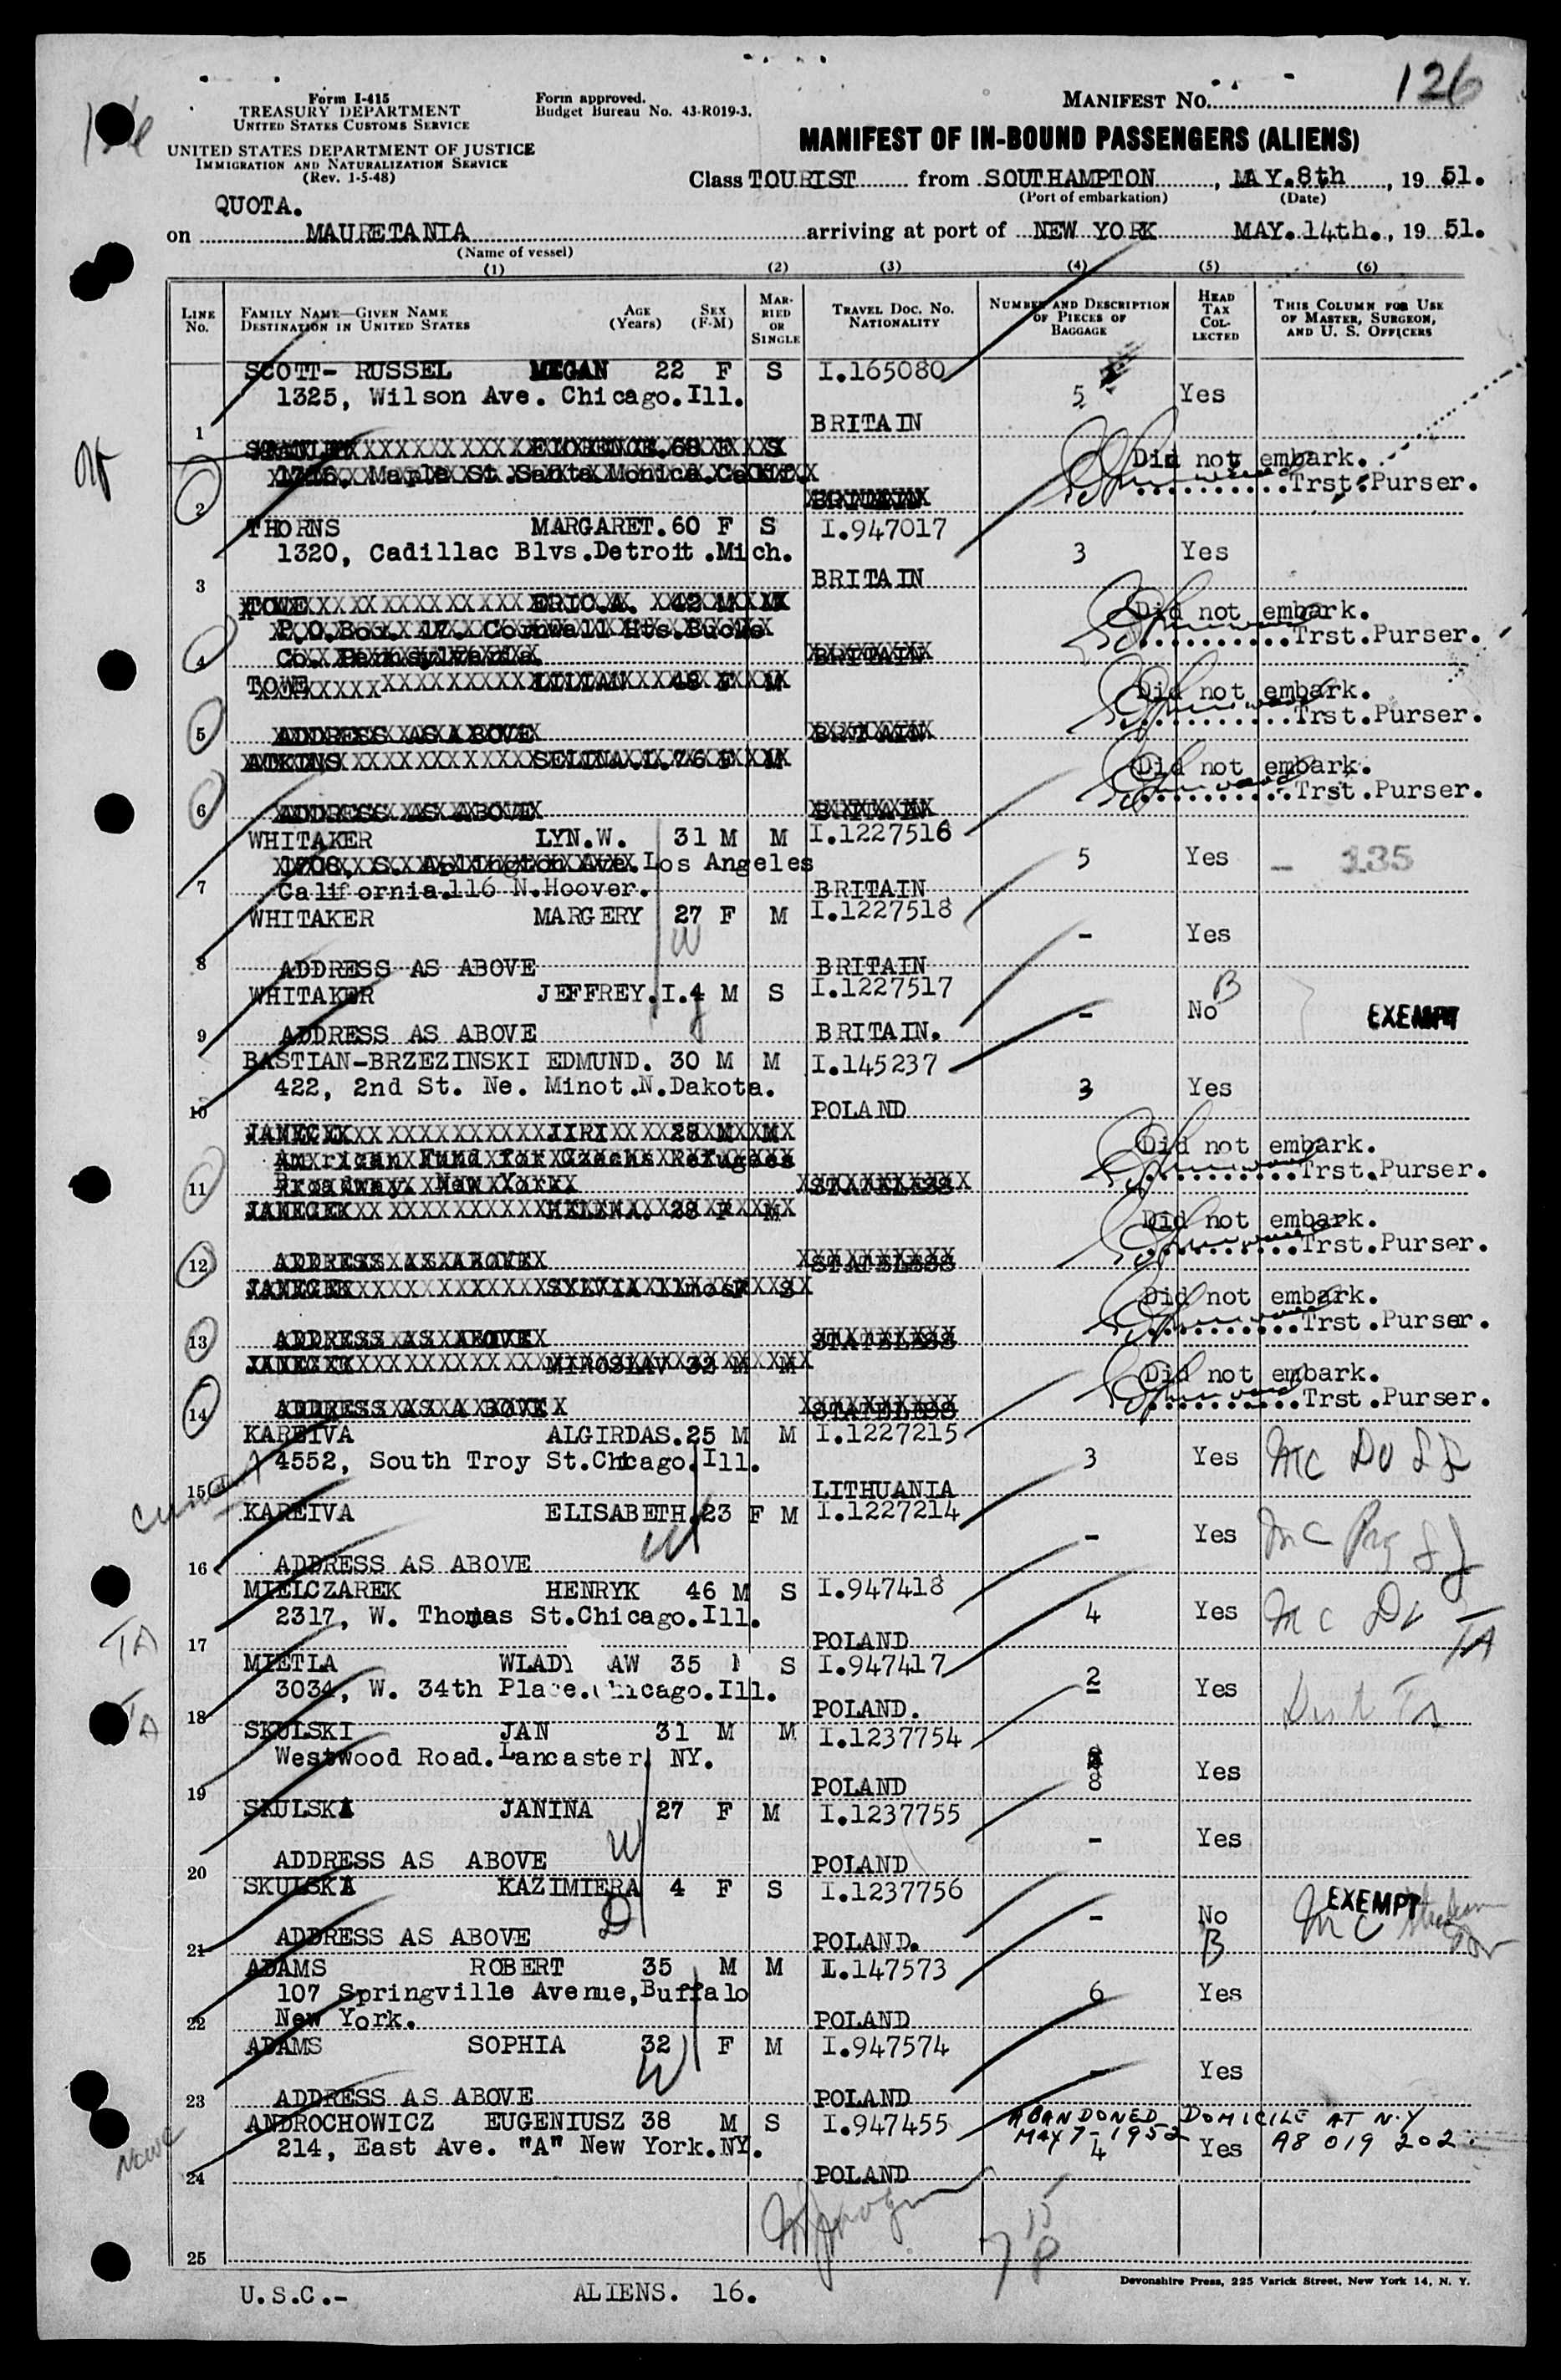 126
Form I-415
TREASURY DEPARTMENT
UNITED STATES CUSTOMS SERVICE
UNITED STATES DEPARTMENT OF JUSTICE
IMMIGRATION AND NATURALIZATION SERVICE
(Rev. 1-5-48)
Form approved.
Budget Bureau No. 43-R019-3.
MANIFEST No.
MANIFEST OF IN-BOUND PASSENGERS (ALIENS)
Class TOURIST from SOUTHAMPTON, MAY.8th, 19 51.
(Port of embarkation) (Date)
QUOTA.
on MAURETANIA arriving at port of NEW YORK MAY.14th., 19 51.
(Name of vessel)
(1) (2) (3) (4) (5) (6)
LINE No. FAMILY NAME—GIVEN NAME DESTINATION IN UNITED STATES AGE (Years) SEX (F-M) MARRIED OR SINGLE TRAVEL DOC. NO. NATIONALITY NUMBER AND DESCRIPTION OF PIECES OF BAGGAGE HEAD TAX COLLECTED THIS COLUMN FOR USE OF MASTER, SURGEON, AND U. S. OFFICERS
SCOTT- RUSSEL MEGAN 22 F S I.165080
1325, Wilson Ave. Chicago.Ill. 5 Yes
1 BRITAIN
FLORENCE.68 F S Did not embark.
1716, Maple St.Santa Monica.Calif. Trst.Purser.
2 BRITAIN
THORNS MARGARET.60 F S I.947017
1320, Cadillac Blvs.Detroit.Mich. 3 Yes
3 BRITAIN
TOWE ERIC.A. 42 M M Did not embark.
P.O.Box. 17. Cornwall Hts.Bucks Trst.Purser.
4 Co. Pennsylvania. BRITAIN
TOWE LILIAN 48 F M Did not embark.
Trst.Purser.
5 ADDRESS AS ABOVE BRITAIN
ATKINS SELINA.L.76 F M Did not embark.
Trst.Purser.
6 ADDRESS AS ABOVE BRITAIN
WHITAKER LYN.W. 31 M M I.1227516
1708, S. Arlington Ave.Los Angeles 5 Yes - 135
7 California.116 N.Hoover. BRITAIN
WHITAKER MARGERY 27 F M I.1227518
W - Yes
8 ADDRESS AS ABOVE BRITAIN
WHITAKER JEFFREY.I.4 M S I.1227517
- No B EXEMPT
9 ADDRESS AS ABOVE BRITAIN.
BASTIAN-BRZEZINSKI EDMUND. 30 M M I.145237
422, 2nd St. Ne. Minot.N.Dakota. 3 Yes
10 POLAND
JANECEK JIRI 28 M M Did not embark.
American Fund for Czechs Refugees Trst.Purser.
11 Broadway. New York. STATELESS
JANECEK HELENA. 28 F M Did not embark.
Trst.Purser.
12 ADDRESS AS ABOVE STATELESS
JANECEK SYLVIA 11mos F S Did not embark.
Trst.Purser.
13 ADDRESS AS ABOVE STATELESS
JANECEK MIROSLAV 32 M M Did not embark.
Trst.Purser.
14 ADDRESS AS ABOVE STATELESS
KAREIVA ALGIRDAS.25 M M I.1227215
4552, South Troy St.Chicago.Ill. 3 Yes
15 LITHUANIA
KAREIVA ELISABETH.23 F M I.1227214
W - Yes
16 ADDRESS AS ABOVE
MIELCZAREK HENRYK 46 M S I.947418
2317, W. Thomas St.Chicago.Ill. 4 Yes
TA 17 POLAND TA
MIETLA 35 S I.947417
3034, W. 34th Place.Chicago.Ill. 2 Yes
TA 18 POLAND.
SKULSKI JAN 31 M M I.1237754
Westwood Road.Lancaster. NY. 8 Yes
19 POLAND
SKULSKA JANINA 27 F M I.1237755
W - Yes
20 ADDRESS AS ABOVE POLAND
SKULSKA KAZIMIERA 4 F S I.1237756
D - No B EXEMPT
21 ADDRESS AS ABOVE POLAND.
ADAMS ROBERT 35 M M I.147573
107 Springville Avenue,Buffalo 6 Yes
22 New York. POLAND
ADAMS SOPHIA 32 F M I.947574
W - Yes
23 ADDRESS AS ABOVE POLAND
ANDROCHOWICZ EUGENIUSZ 38 M S I.947455 ABANDONED DOMICILE AT N.Y
214, East Ave. "A" New York.NY. MAY 7-1952 4 Yes A8 019 202
24 POLAND
25
Devonshire Press, 225 Varick Street, New York 14, N. Y.
U.S.C.- ALIENS. 16.